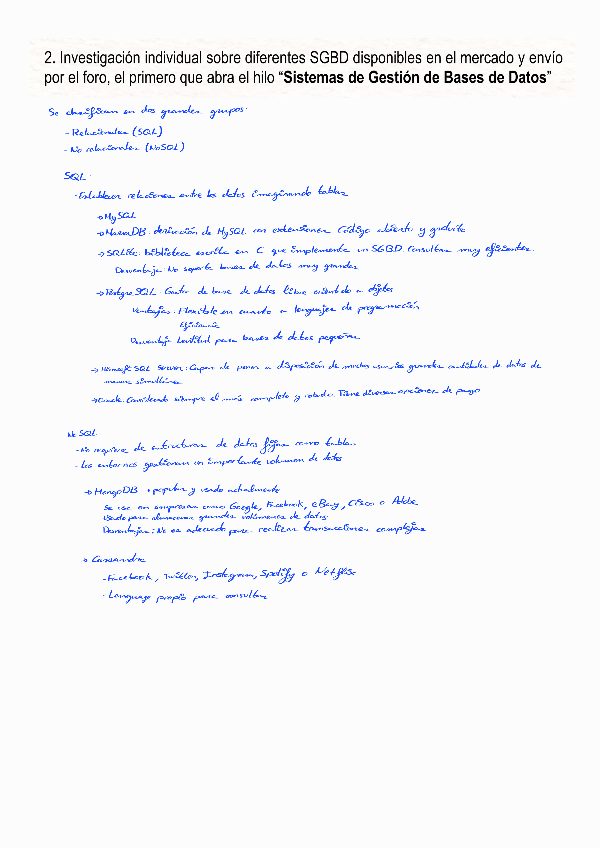 2. Investigación individual sobre diferentes SGBD disponibles en el mercado y envío
por el foro, el primero que abra el hilo “Sistemas de Gestión de Bases de Datos”
Se clasifican en dos grandes grupos.
- Relacionales (SQL)
- No relacionales (NoSQL)
SQL.
- Establecer relaciones entre los datos imaginando tablas
→ MySQL
→ MariaDB: derivación de MySQL con extensiones Código abierto y gratuito
→ SQLite: Biblioteca escrita en C que implementa un SGBD. Consultas muy eficientes.
Desventaja: No soporta bases de datos muy grandes
→ Postgre SQL. Gestor de base de datos libre orientado a objetos
Ventajas: Flexible en cuanto a lenguajes de programación
Eficiencia
Desventaja Lentitud para bases de datos pequeñas
→ Microsoft SQL Server: Capaz de poner a disposición de muchos usuarios grandes cantidades de datos de
manera simultánea
→ Oracle: Considerado siempre el más completo y robusto. Tiene diversas opciones de pago
NoSQL
- No requiere de estructuras de datos fijas como tablas.
- Los entornos gestionan un importante volumen de datos
→ MongoDB + popular y usado actualmente
Se usa en empresas como Google, Facebook, eBay, Cisco o Adobe
Usado para almacenar grandes volúmenes de datos
Desventajas: No es adecuado para realizar transacciones complejas
→ Cassandra
- Facebook, Twitter, Instagram, Spotify o Netflix
- Lenguaje propio para consultas